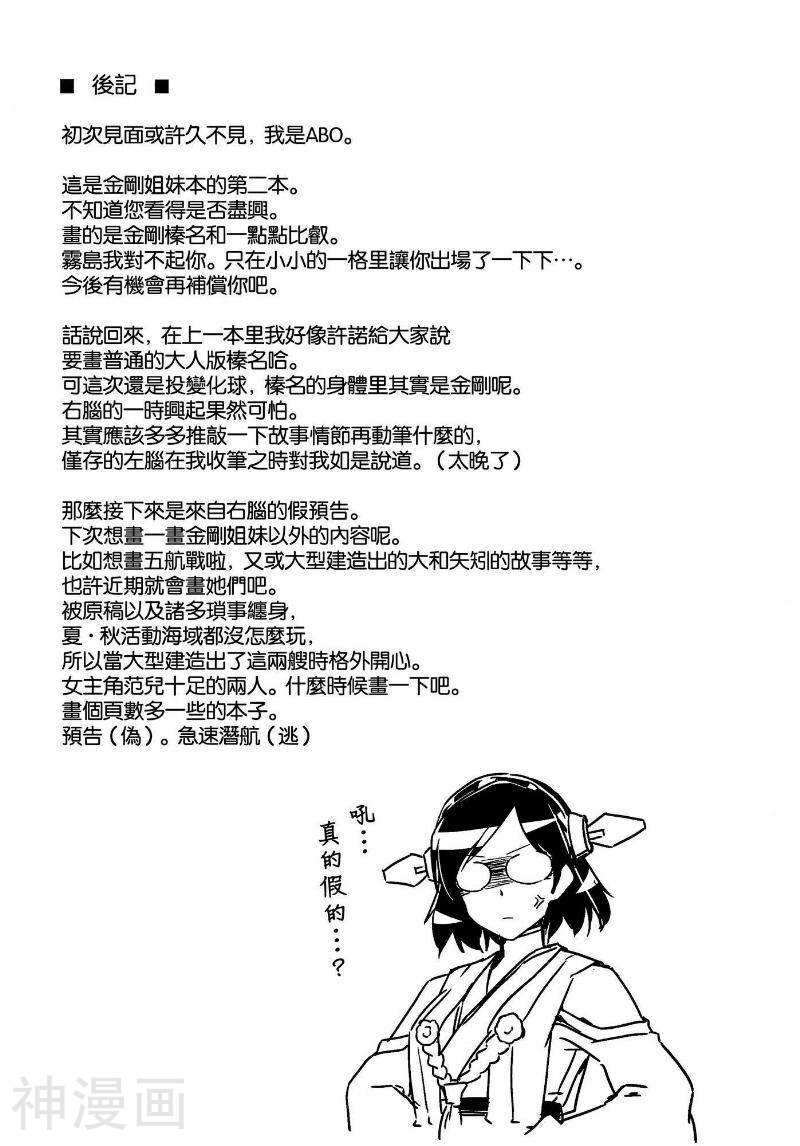 ■ 後記 ■
初次見面或許久不見，我是ABO。
這是金剛姐妹本的第二本。
不知道您看得是否盡興。
畫的是金剛榛名和一點點比叡。
霧島我對不起你。只在小小的一格里讓你出場了一下下…。
今後有機會再補償你吧。
話說回來，在上一本里我好像許諾給大家說
要畫普通的大人版榛名哈。
可這次還是投變化球，榛名的身體里其實是金剛呢。
右腦的一時興起果然可怕。
其實應該多多推敲一下故事情節再動筆什麼的，
僅存的左腦在我收筆之時對我如是說道。（太晚了）
那麼接下來是來自右腦的假預告。
下次想畫一畫金剛姐妹以外的內容呢。
比如想畫五航戰啦，又或大型建造出的大和矢矧的故事等等，
也許近期就會畫她們吧。
被原稿以及諸多瑣事纏身，
夏·秋活動海域都沒怎麼玩，
所以當大型建造出了這兩艘時格外開心。
女主角范兒十足的兩人。什麼時候畫一下吧。
畫個頁數多一些的本子。
預告（偽）。急速潛航（逃）
吼…
真的假的…？
神漫画